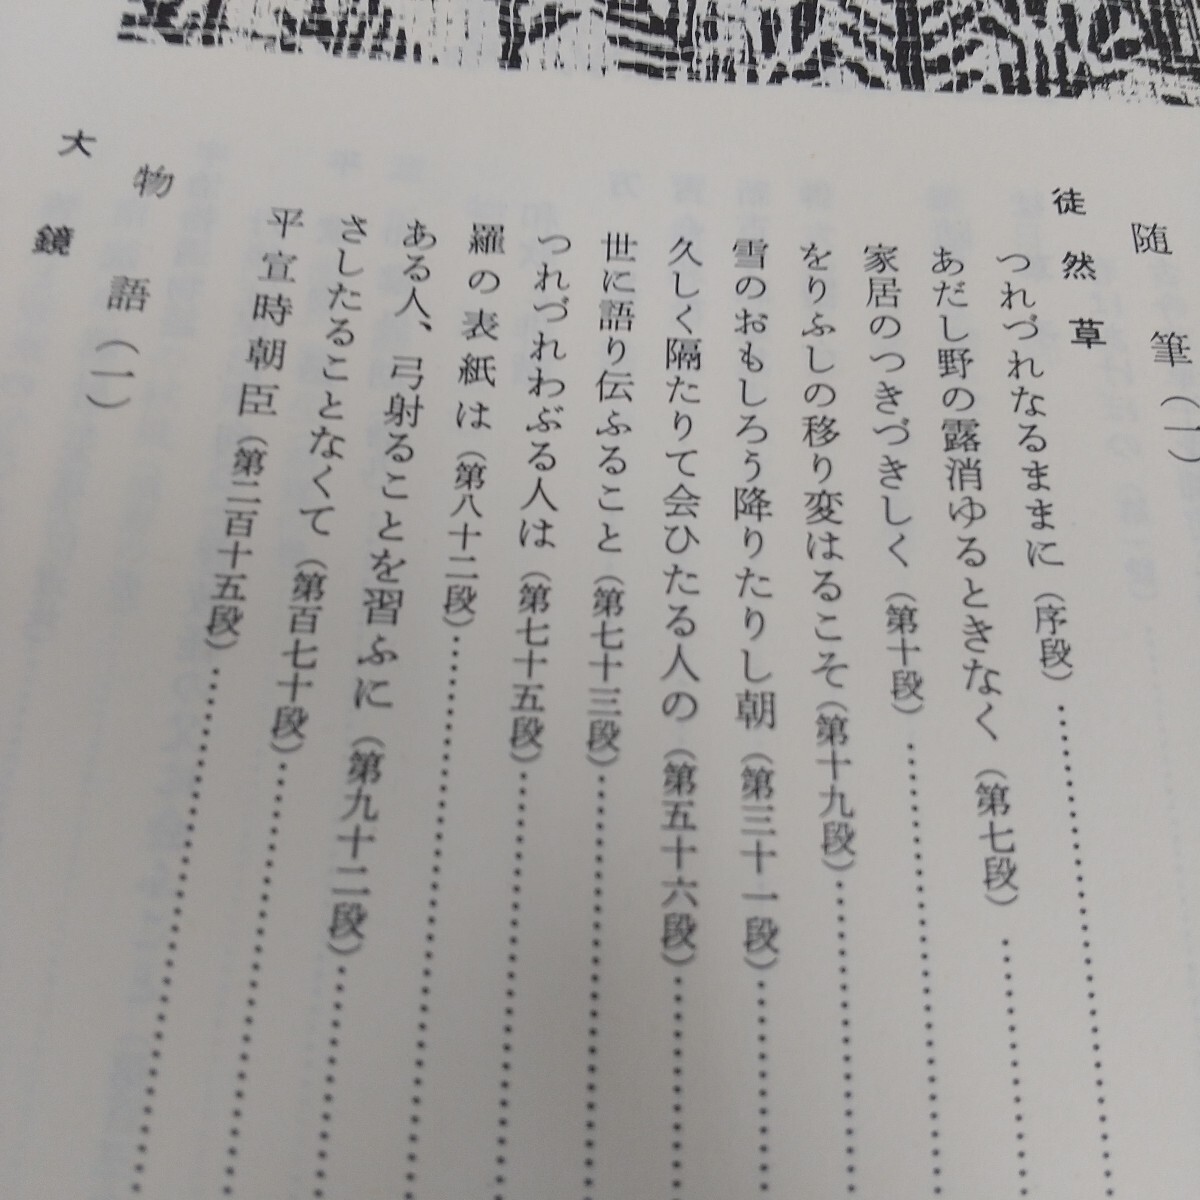 随筆(一)
徒然草
つれづれなるままに(序段)
あだし野の露消ゆるときなく(第七段)
家居のつきづきしく(第十段)
をりふしの移り変はるこそ(第十九段)
雪のおもしろう降りたりし朝(第三十一段)
久しく隔たりて会ひたる人の(第五十六段)
世に語り伝ふること(第七十三段)
つれづれわぶる人は(第七十五段)
羅の表紙は(第八十二段)
ある人、弓射ることを習ふに(第九十二段)
さしたることなくて(第百七十段)
平宣時朝臣(第二百十五段)
物語(一)
大鏡